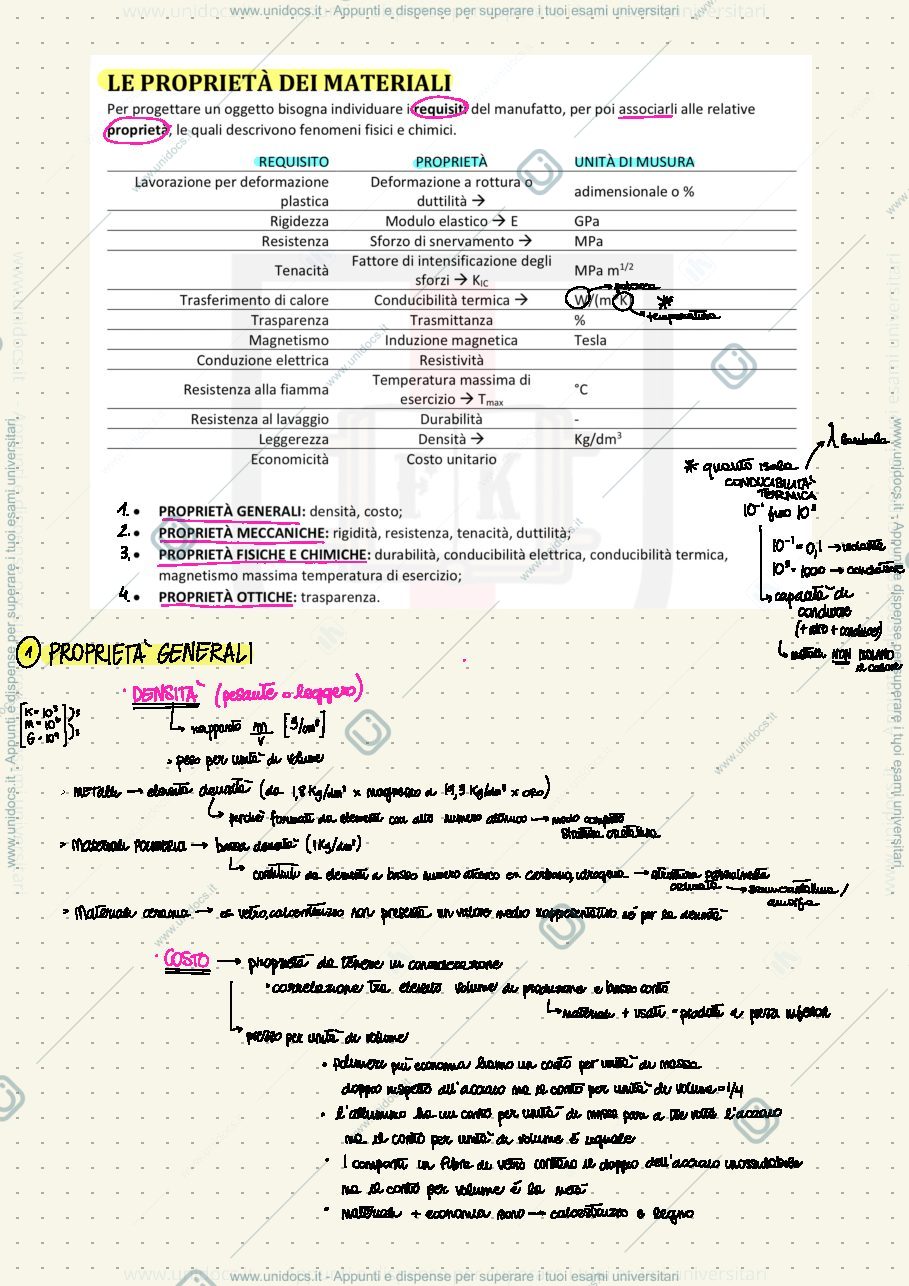 www.unidocs.it - Appunti e dispense per superare i tuoi esami universitari
LE PROPRIETÀ DEI MATERIALI
Per progettare un oggetto bisogna individuare i requisiti del manufatto, per poi associarli alle relative
proprietà, le quali descrivono fenomeni fisici e chimici.
REQUISITO PROPRIETÀ UNITÀ DI MUSURA
Lavorazione per deformazione plastica Deformazione a rottura o duttilità → adimensionale o %
Rigidezza Modulo elastico → E GPa
Resistenza Sforzo di snervamento → MPa
Tenacità Fattore di intensificazione degli sforzi → K_IC MPa m^1/2
Trasferimento di calore Conducibilità termica → W/(m K) *
potenza
temperatura
Trasparenza Trasmittanza %
Magnetismo Induzione magnetica Tesla
Conduzione elettrica Resistività
Resistenza alla fiamma Temperatura massima di esercizio → T_max °C
Resistenza al lavaggio Durabilità -
Leggerezza Densità → Kg/dm³
Economicità Costo unitario
λ lambda
* quanto isola
CONDUCIBILITÀ
TERMICA
10⁻¹ fino 10³
10⁻¹ = 0,1 → isolante
10³ = 1000 → conduttore
↳ capacità di
condurre
(+ alto + conduce)
↳ metalli NON ISOLANO
il calore
1. • PROPRIETÀ GENERALI: densità, costo;
2. • PROPRIETÀ MECCANICHE: rigidità, resistenza, tenacità, duttilità;
3. • PROPRIETÀ FISICHE E CHIMICHE: durabilità, conducibilità elettrica, conducibilità termica,
magnetismo massima temperatura di esercizio;
4. • PROPRIETÀ OTTICHE: trasparenza.
1 PROPRIETÀ GENERALI
• DENSITÀ (pesante o leggero)
K = 10³
M = 10⁶
G = 10⁹
↳ rapporto m/v [g/cm³]
> peso per unità di volume
> METALLI → elevata densità (da 1,8 Kg/dm³ x magnesio a 19,3 Kg/dm³ x oro)
↳ perché formati da elementi con alto numero atomico → molto compatti
struttura cristallina
> Materiali POLIMERICI → bassa densità (1Kg/dm³)
↳ costituiti da elementi a basso numero atomico es. carbonio, idrogeno → struttura parzialmente
ordinata → semicristallina /
amorfa
> Materiali ceramici → es vetro, calcestruzzo non presenta un valore medio rappresentativo sé per la densità
• COSTO → proprietà da tenere in considerazione
• correlazione tra elevato volume di produzione e basso costo
↳ materiali + usati = prodotti a prezzi inferiori
↳ prezzo per unità di volume
• polimeri più economici hanno un costo per unità di massa
doppio rispetto all'acciaio ma il costo per unità di volume = 1/4
• l'alluminio ha un costo per unità di massa pari a tre volte l'acciaio
ma il costo per unità di volume è uguale
• I compositi in fibra di vetro costano il doppio dell'acciaio inossidabile
ma il costo per volume è la metà
• materiali + economici sono → calcestruzzo e legno
www.unidocs.it - Appunti e dispense per superare i tuoi esami universitari